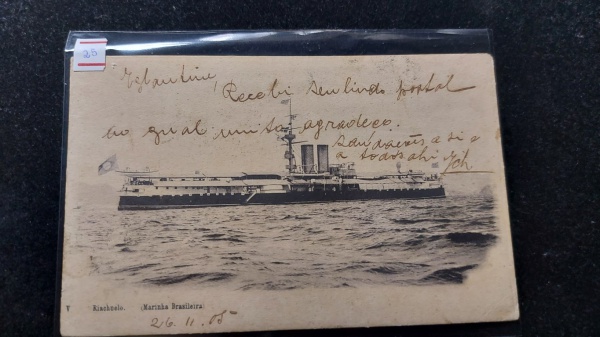 25
Eglantine,
Recebi seu lindo postal
ao qual muito agradeço.
Saudações a si e
a todos ahi
V Riachuelo. (Marinha Brasileira)
26.11.05